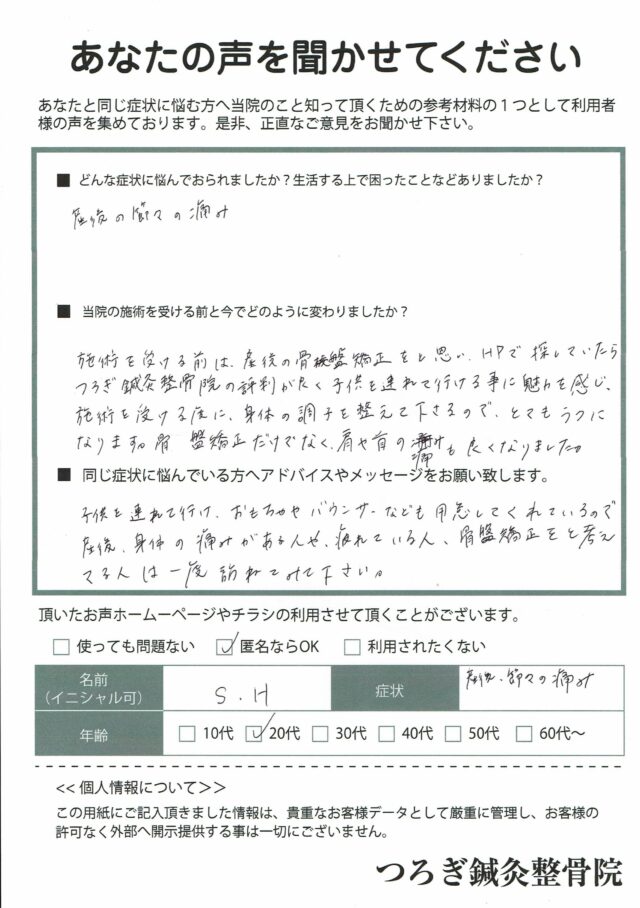 あなたの声を聞かせてください
あなたと同じ症状に悩む方へ当院のこと知って頂くための参考材料の１つとして利用者
様の声を集めております。是非、正直なご意見をお聞かせ下さい。
■ どんな症状に悩んでおられましたか？生活する上で困ったことなどありましたか？
産後の節々の痛み
■ 当院の施術を受ける前と今でどのように変わりましたか？
施術を受ける前は、産後の骨盤矯正をと思い、HPで探していたら
つろぎ鍼灸整骨院の評判が良く子供を連れて行ける事に魅力を感じ、
施術を受ける度に、身体の調子を整えて下さるので、とても
なります。骨盤矯正だけでなく、肩や首の痛みも良くなりました。
■ 同じ症状に悩んでいる方へアドバイスやメッセージをお願い致します。
子供を連れて行け、おもちゃやバウンサーなども用意してくれているので
産後、身体の痛みがある人や、疲れている人、骨盤矯正をと考え
てる人は一度訪ねてみて下さい。
頂いたお声ホームーページやチラシの利用させて頂くことがございます。
□ 使っても問題ない ☑ 匿名ならOK □ 利用されたくない
名前
（イニシャル可） S.H 症状 産後、節々の痛み
年齢 □ 10代 ☑ 20代 □ 30代 □ 40代 □ 50代 □ 60代～
<< 個人情報について>>
この用紙にご記入頂きました情報は、貴重なお客様データとして厳重に管理し、お客様の
許可なく外部へ開示提供する事は一切にございません。
つろぎ鍼灸整骨院